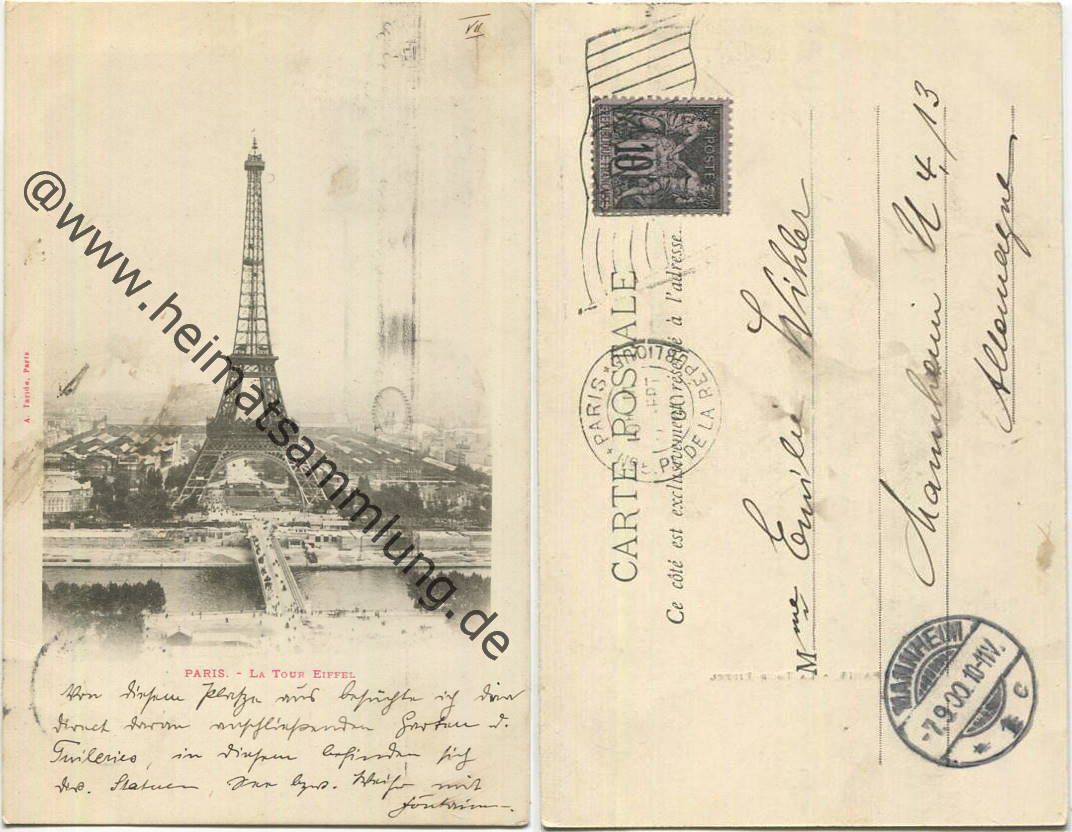 VII
@www.heimatsammlung.de
A. Taride, Paris
PARIS. - LA TOUR EIFFEL
Von diesem Platze aus besuchte ich den
direct daran anschließenden Garten d.
Tuileries, in diesem befinden sich
div. Statuen, See bzw. Weiher mit
Fontainen.
POSTES
10
REPUBLIQUE FRANÇAISE
CARTE POSTALE
Ce côté est exclusivement réservé à l'adresse.
*PARIS*
SEPT
DE LA REPUBLIQUE
Mme Emilie Wihler
Mannheim U 4, 13
Allemagne
MANNHEIM
-7.9.00.10-11V.
* 1 c